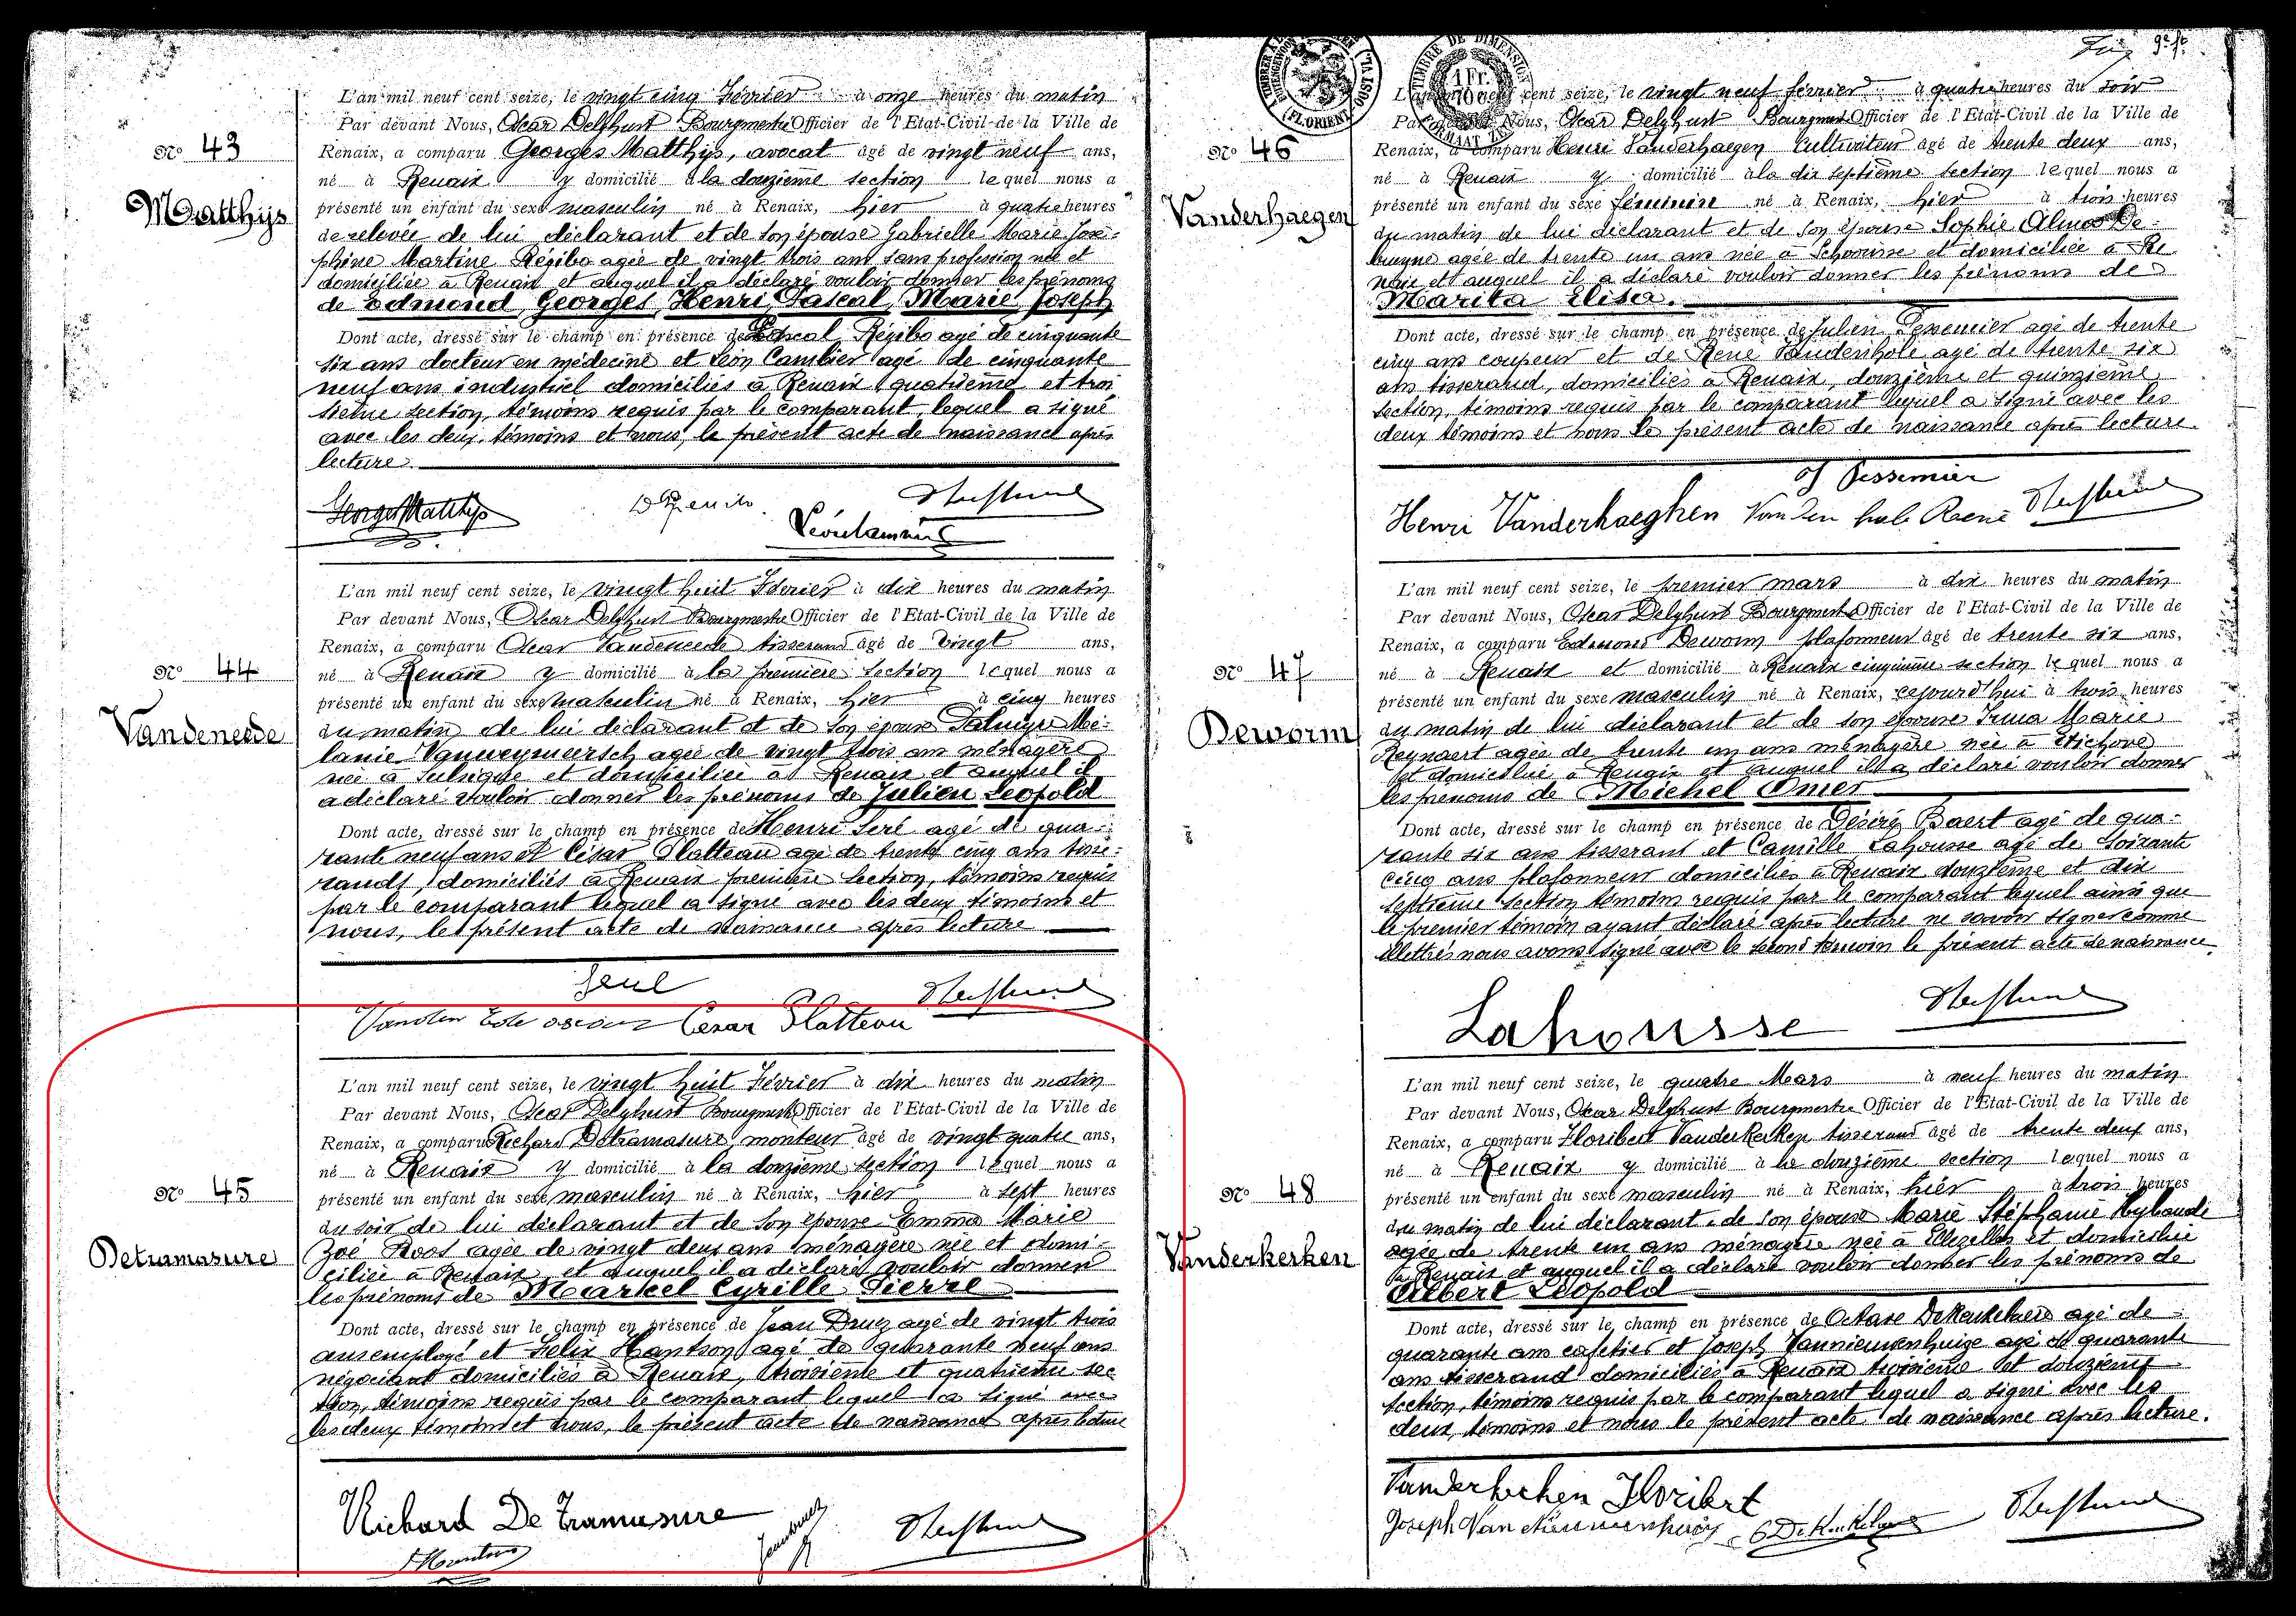 Nº 43
Matthijs
L'an mil neuf cent seize, le vingt cinq Février à onze heures du matin
Par devant Nous, Oscar Delghust Bourgmestre Officier de l'Etat-Civil de la Ville de
Renaix, a comparu Georges Matthijs, avocat âgé de vingt neuf ans,
né à Renaix y domicilié à la douzième section lequel nous a
présenté un enfant du sexe masculin né à Renaix, hier à quatre heures
de relevée de lui déclarant et de son épouse Gabrielle Marie José-
phine Martine Régibo agée de vingt trois ans sans profession née et
domiciliée à Renaix et auquel il a déclaré vouloir donner les prénoms
de Edmond Georges Henri Pascal Marie Joseph
Dont acte, dressé sur le champ en présence de Pascal Régibo agé de cinquante
six ans docteur en médecine et Léon Cambier agé de cinquante
neuf ans industriel domiciliés à Renaix quatrième et troi
sième section, témoins requis par le comparant, lequel a signé
avec les deux témoins et nous, le présent acte de naissance après
lecture.
Georges Matthijs
Nº 44
Vandeneede
L'an mil neuf cent seize, le vingt huit Février à dix heures du matin
Par devant Nous, Oscar Delghust Bourgmestre Officier de l'Etat-Civil de la Ville de
Renaix, a comparu Oscar Vandeneede tisserand âgé de vingt ans,
né à Renaix y domicilié à la première section lequel nous a
présenté un enfant du sexe masculin né à Renaix, hier à cinq heures
du matin de lui déclarant et de son épouse Mé-
lanie agée de vingt trois ans ménagère
née à Sulsique et domiciliée à Renaix et auquel il
a déclaré vouloir donner les prénoms de Julien Leopold
Dont acte, dressé sur le champ en présence de Henri agé de qua-
rante neuf ans et César Platteau agé de trente cinq ans tisse-
rands, domiciliés à Renaix première section, témoins requis
par le comparant lequel a signé avec les deux témoins et
nous, le présent acte de naissance après lecture
Cesar Platteau
Nº 45
Detramasure
L'an mil neuf cent seize, le vingt huit Février à dix heures du matin
Par devant Nous, Oscar Delghust Bourgmestre Officier de l'Etat-Civil de la Ville de
Renaix, a comparu Richard Detramasure, monteur âgé de vingt quatre ans,
né à Renaix y domicilié à la douzième section lequel nous a
présenté un enfant du sexe masculin né à Renaix, hier à sept heures
du soir de lui déclarant et de son épouse Emma Marie
Zoé Roos agée de vingt deux ans ménagère née et domi-
ciliée à Renaix et auquel il a déclaré vouloir donner
les prénoms de Markel Cyrille Pierre
Dont acte, dressé sur le champ en présence de Jean Druez agé de vingt trois
ans employé et Felix Hantson agé de quarante neuf ans
négociant domiciliés à Renaix, troisième et quatrième sec
tion, témoins requis par le comparant lequel a signé avec
les deux témoins et nous, le présent acte de naissance après lecture
Richard De Tramasure
TIMBRE DE DIMENSION
1 Fr.
Nº 46
Vanderhaegen
L'an mil neuf cent seize, le vingt neuf février à quatre heures du soir
Par devant Nous, Oscar Delghust Bourgmest Officier de l'Etat-Civil de la Ville de
Renaix, a comparu Henri Vanderhaegen Cultivateur âgé de trente deux ans,
né à Renaix y domicilié à la dix septième section lequel nous a
présenté un enfant du sexe féminin né à Renaix, hier à trois heures
du matin de lui déclarant et de son épouse Sophie Alma De-
bruyne agée de trente un ans née à Schoorisse et domiciliée à Re
naix et auquel il a déclaré vouloir donner les prénoms de
Marita Elisa.
Dont acte, dressé sur le champ en présence de Julien Pessemier agé de trente
cinq ans coupeur et de René Vandenhole agé de trente six
ans tisserand, domiciliés à Renaix, douzième et quinzième
section, témoins requis par le comparant lequel a signé avec les
deux témoins et nous le présent acte de naissance après lecture.
J Pessemier
Henri Vanderhaeghen Van den hole René
Nº 47
Deworm
L'an mil neuf cent seize, le premier mars à dix heures du matin
Par devant Nous, Oscar Delghust Bourgmestre Officier de l'Etat-Civil de la Ville de
Renaix, a comparu Edmond Deworm plafonneur âgé de trente six ans,
né à Renaix et domicilié à Renaix cinquième section lequel nous a
présenté un enfant du sexe masculin né à Renaix, cejourd'hui à trois heures
du matin de lui déclarant et de son épouse Irma Marie
Reynaert agée de trente un ans ménagère née à Etichove
et domiciliée à Renaix et auquel il a déclaré vouloir donner
les prénoms de Michel Omer
Dont acte, dressé sur le champ en présence de Désiré Baert agé de qua-
rante six ans tisserant et Camille Lahousse agé de soixante
cinq ans plafonneur domiciliés à Renaix douzième et dix
septième section témoins requis par le comparant lequel ainsi que
le premier témoin ayant déclaré après lecture ne savoir signer comme
illettrés nous avons signé avec le second témoin le présent acte de naissance.
Lahousse
Nº 48
Vanderkerken
L'an mil neuf cent seize, le quatre Mars à neuf heures du matin
Par devant Nous, Oscar Delghust Bourgmestre Officier de l'Etat-Civil de la Ville de
Renaix, a comparu Floribert Vanderkerken tisserand âgé de trente deux ans,
né à Renaix y domicilié à la douzième section lequel nous a
présenté un enfant du sexe masculin né à Renaix, hier à trois heures
du matin de lui déclarant de son épouse Marie Stéphanie
agée de trente un ans ménagère née à Ellezelles et domiciliée
à Renaix et auquel il a déclaré vouloir donner les prénoms de
Albert Léopold
Dont acte, dressé sur le champ en présence de Octave Dekeukeleire agé de
quarante ans cafetier et Joseph Vannieuwenhuize agé de quarante
ans tisserand domiciliés à Renaix troisième et douzième
section, témoins requis par le comparant lequel a signé avec les
deux témoins et nous le présent acte de naissance après lecture.
Vanderkerken Floribert